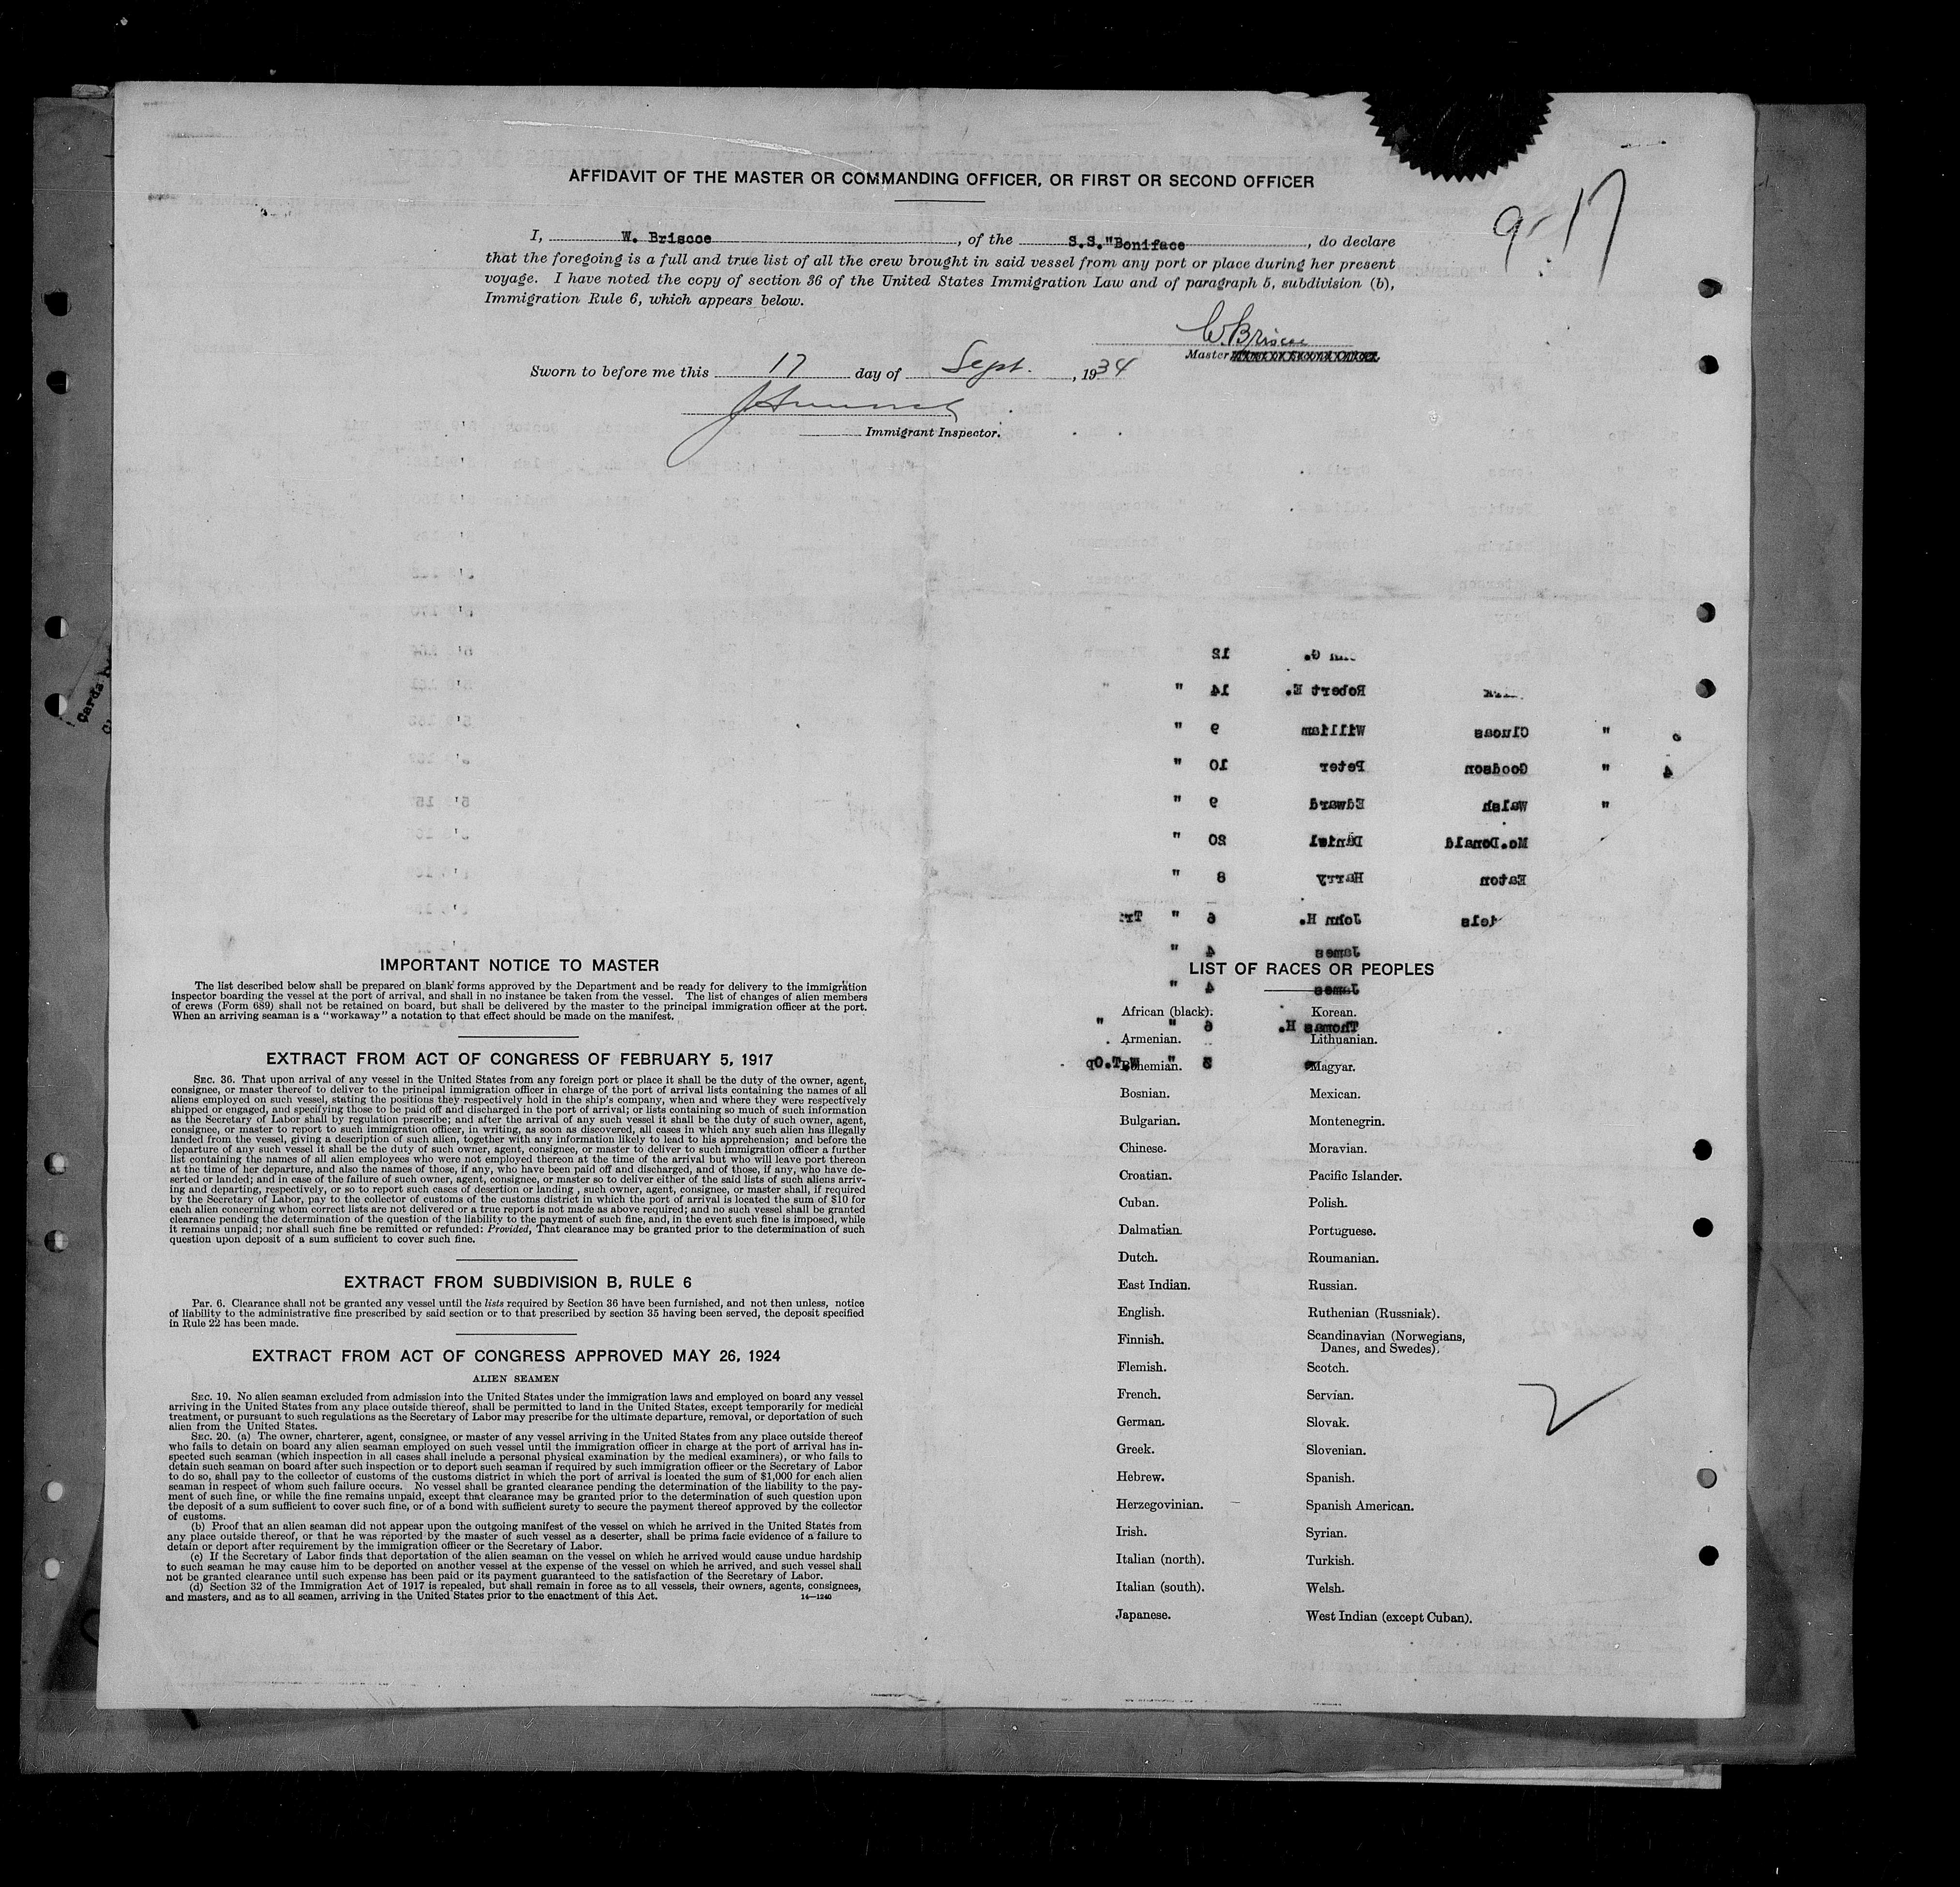 AFFIDAVIT OF THE MASTER OR COMMANDING OFFICER, OR FIRST OR SECOND OFFICER
9-17
I, W. Briscoe, of the S.S."Boniface, do declare
that the foregoing is a full and true list of all the crew brought in said vessel from any port or place during her present
voyage. I have noted the copy of section 36 of the United States Immigration Law and of paragraph 5, subdivision (b),
Immigration Rule 6, which appears below.
W. Briscoe
Master
Sworn to before me this 17 day of Sept., 1934
Immigrant Inspector.
12
Robert E. 14 "
" Clucas William 9 "
4 " Goodson Peter 10 "
" Walsh Edward 9 "
Mc.Donald Daniel 20 "
Eaton Harry 8 "
John H. 6 "
James 4 "
James 4 "
Thomas H. 6 " "
3 " W.T.Op
Cards
IMPORTANT NOTICE TO MASTER
The list described below shall be prepared on blank forms approved by the Department and be ready for delivery to the immigration
inspector boarding the vessel at the port of arrival, and shall in no instance be taken from the vessel. The list of changes of alien members
of crews (Form 689) shall not be retained on board, but shall be delivered by the master to the principal immigration officer at the port.
When an arriving seaman is a "workaway" a notation to that effect should be made on the manifest.
EXTRACT FROM ACT OF CONGRESS OF FEBRUARY 5, 1917
SEC. 36. That upon arrival of any vessel in the United States from any foreign port or place it shall be the duty of the owner, agent,
consignee, or master thereof to deliver to the principal immigration officer in charge of the port of arrival lists containing the names of all
aliens employed on such vessel, stating the positions they respectively hold in the ship's company, when and where they were respectively
shipped or engaged, and specifying those to be paid off and discharged in the port of arrival; or lists containing so much of such information
as the Secretary of Labor shall by regulation prescribe; and after the arrival of any such vessel it shall be the duty of such owner, agent,
consignee, or master to report to such immigration officer, in writing, as soon as discovered, all cases in which any such alien has illegally
landed from the vessel, giving a description of such alien, together with any information likely to lead to his apprehension; and before the
departure of any such vessel it shall be the duty of such owner, agent, consignee, or master to deliver to such immigration officer a further
list containing the names of all alien employees who were not employed thereon at the time of the arrival but who will leave port thereon
at the time of her departure, and also the names of those, if any, who have been paid off and discharged, and of those, if any, who have de-
serted or landed; and in case of the failure of such owner, agent, consignee, or master so to deliver either of the said lists of such aliens arriv-
ing and departing, respectively, or so to report such cases of desertion or landing , such owner, agent, consignee, or master shall, if required
by the Secretary of Labor, pay to the collector of customs of the customs district in which the port of arrival is located the sum of $10 for
each alien concerning whom correct lists are not delivered or a true report is not made as above required; and no such vessel shall be granted
clearance pending the determination of the question of the liability to the payment of such fine, and, in the event such fine is imposed, while
it remains unpaid; nor shall such fine be remitted or refunded: Provided, That clearance may be granted prior to the determination of such
question upon deposit of a sum sufficient to cover such fine.
EXTRACT FROM SUBDIVISION B, RULE 6
Par. 6. Clearance shall not be granted any vessel until the lists required by Section 36 have been furnished, and not then unless, notice
of liability to the administrative fine prescribed by said section or to that prescribed by section 35 having been served, the deposit specified
in Rule 22 has been made.
EXTRACT FROM ACT OF CONGRESS APPROVED MAY 26, 1924
ALIEN SEAMEN
SEC. 19. No alien seaman excluded from admission into the United States under the immigration laws and employed on board any vessel
arriving in the United States from any place outside thereof, shall be permitted to land in the United States, except temporarily for medical
treatment, or pursuant to such regulations as the Secretary of Labor may prescribe for the ultimate departure, removal, or deportation of such
alien from the United States.
SEC. 20. (a) The owner, charterer, agent, consignee, or master of any vessel arriving in the United States from any place outside thereof
who fails to detain on board any alien seaman employed on such vessel until the immigration officer in charge at the port of arrival has in-
spected such seaman (which inspection in all cases shall include a personal physical examination by the medical examiners), or who fails to
detain such seaman on board after such inspection or to deport such seaman if required by such immigration officer or the Secretary of Labor
to do so, shall pay to the collector of customs of the customs district in which the port of arrival is located the sum of $1,000 for each alien
seaman in respect of whom such failure occurs. No vessel shall be granted clearance pending the determination of the liability to the pay-
ment of such fine, or while the fine remains unpaid, except that clearance may be granted prior to the determination of such question upon
the deposit of a sum sufficient to cover such fine, or of a bond with sufficient surety to secure the payment thereof approved by the collector
of customs.
(b) Proof that an alien seaman did not appear upon the outgoing manifest of the vessel on which he arrived in the United States from
any place outside thereof, or that he was reported by the master of such vessel as a deserter, shall be prima facie evidence of a failure to
detain or deport after requirement by the immigration officer or the Secretary of Labor.
(c) If the Secretary of Labor finds that deportation of the alien seaman on the vessel on which he arrived would cause undue hardship
to such seaman he may cause him to be deported on another vessel at the expense of the vessel on which he arrived, and such vessel shall
not be granted clearance until such expense has been paid or its payment guaranteed to the satisfaction of the Secretary of Labor.
(d) Section 32 of the Immigration Act of 1917 is repealed, but shall remain in force as to all vessels, their owners, agents, consignees,
and masters, and as to all seamen, arriving in the United States prior to the enactment of this Act.
14—1240
LIST OF RACES OR PEOPLES
African (black).
Armenian.
Bohemian.
Bosnian.
Bulgarian.
Chinese.
Croatian.
Cuban.
Dalmatian.
Dutch.
East Indian.
English.
Finnish.
Flemish.
French.
German.
Greek.
Hebrew.
Herzegovinian.
Irish.
Italian (north).
Italian (south).
Japanese.
Korean.
Lithuanian.
Magyar.
Mexican.
Montenegrin.
Moravian.
Pacific Islander.
Polish.
Portuguese.
Roumanian.
Russian.
Ruthenian (Russniak).
Scandinavian (Norwegians,
Danes, and Swedes).
Scotch.
Servian.
Slovak.
Slovenian.
Spanish.
Spanish American.
Syrian.
Turkish.
Welsh.
West Indian (except Cuban).